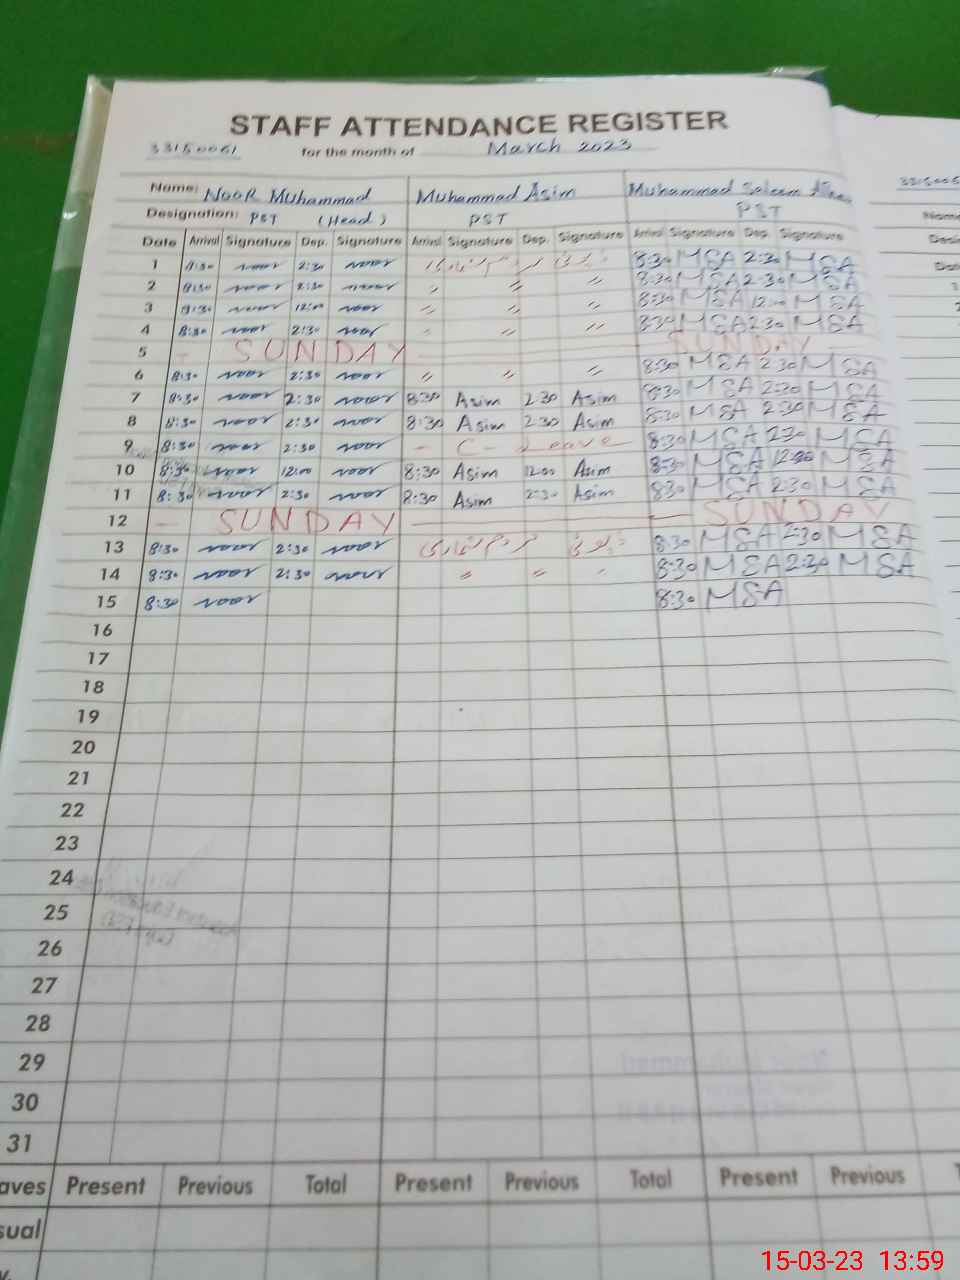 STAFF ATTENDANCE REGISTER
33150061 for the month of March 2023
Name: NOOR Muhammad Muhammad Asim Muhammad Saleem
Designation: PST (Head) PST PST
Date Arrival Signature Dep. Signature Arrival Signature Dep. Signature Arrival Signature Dep. Signature
1 8:30 noor 2:30 noor مردم شماری ڈیوٹی 8:30 MSA 2:30 MSA
2 8:30 noor 2:30 noor " " " 8:30 MSA 2:30 MSA
3 8:30 noor 12:00 noor " " " 8:30 MSA 12:00 MSA
4 8:30 noor 2:30 noor " " " 8:30 MSA 2:30 MSA
5 - SUNDAY - SUNDAY -
6 8:30 noor 2:30 noor " " " 8:30 MSA 2:30 MSA
7 8:30 noor 2:30 noor 8:30 Asim 2:30 Asim 8:30 MSA 2:30 MSA
8 8:30 noor 2:30 noor 8:30 Asim 2:30 Asim 8:30 MSA 2:30 MSA
9 8:30 noor 2:30 noor - C - Leave - 8:30 MSA 2:30 MSA
10 8:30 noor 12:00 noor 8:30 Asim 12:00 Asim 8:30 MSA 12:00 MSA
11 8:30 noor 2:30 noor 8:30 Asim 2:30 Asim 8:30 MSA 2:30 MSA
12 - SUNDAY - SUNDAY
13 8:30 noor 2:30 noor مردم شماری ڈیوٹی 8:30 MSA 2:30 MSA
14 8:30 noor 2:30 noor " " " 8:30 MSA 2:30 MSA
15 8:30 noor 8:30 MSA
16
17
18
19
20
21
22
23
24
25
26
27
28
29
30
31
aves Present Previous Total Present Previous Total Present Previous
sual
15-03-23 13:59